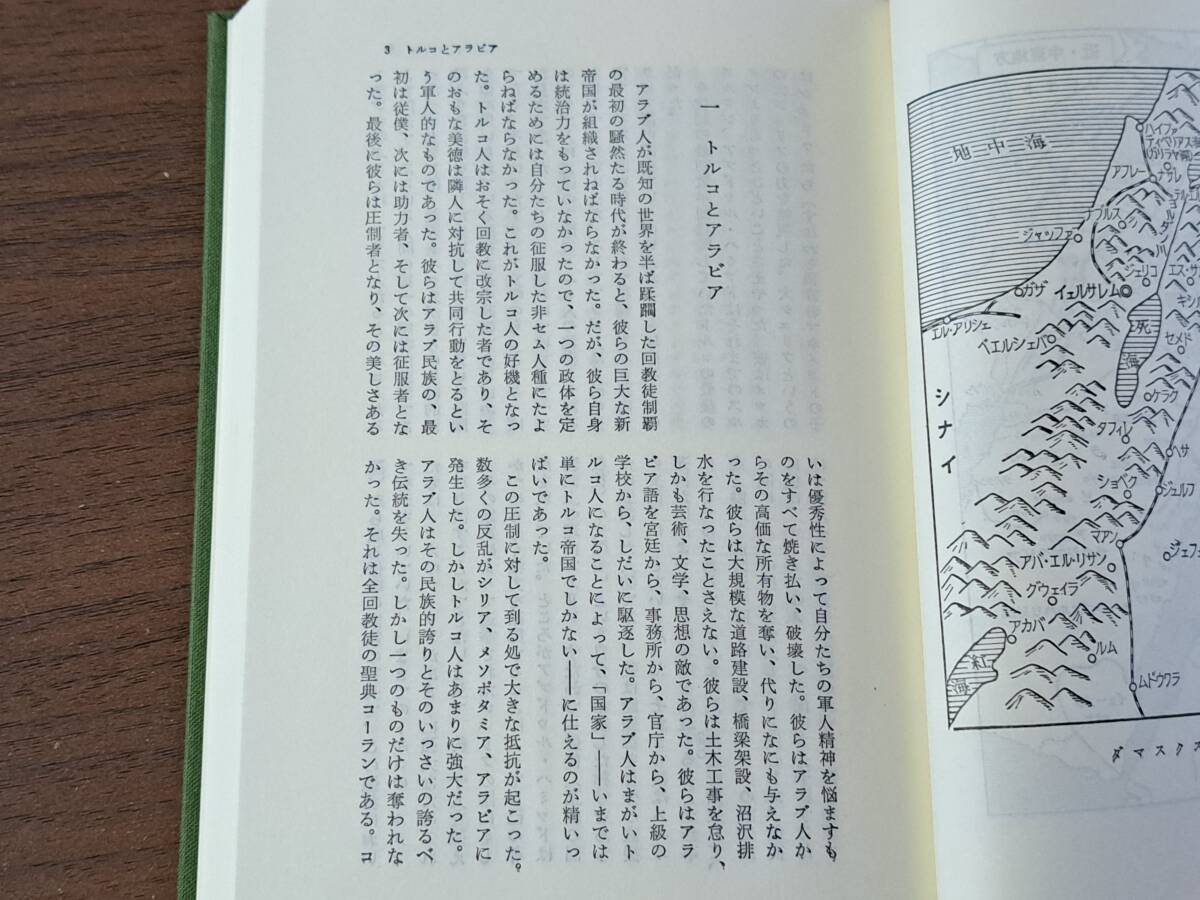 3 トルコとアラビア
一 トルコとアラビア
アラブ人が既知の世界を半ば蹂躙した回教徒制覇
の最初の騒然たる時代が終わると、彼らの巨大な新
帝国が組織されねばならなかった。だが、彼ら自身
は統治力をもっていなかったので、一つの政体を定
めるためには自分たちの征服した非セム人種にたよ
らねばならなかった。これがトルコ人の好機となっ
た。トルコ人はおそく回教に改宗した者であり、そ
のおもな美徳は隣人に対抗して共同行動をとるとい
う軍人的なものであった。彼らはアラブ民族の、最
初は従僕、次には助力者、そして次には征服者とな
った。最後に彼らは圧制者となり、その美しさある
いは優秀性によって自分たちの軍人精神を悩ますも
のをすべて焼き払い、破壊した。彼らはアラブ人か
らその高価な所有物を奪い、代りになにも与えなか
った。彼らは大規模な道路建設、橋梁架設、沼沢排
水を行なったことさえない。彼らは土木工事を怠り、
しかも芸術、文学、思想の敵であった。彼らはアラ
ビア語を宮廷から、事務所から、官庁から、上級の
学校から、しだいに駆逐した。アラブ人はまがいト
ルコ人になることによって、「国家」——いまでは
単にトルコ帝国でしかない——に仕えるのが精いっ
ぱいであった。
この圧制に対して到る処で大きな抵抗が起こった。
数多くの反乱がシリア、メソポタミア、アラビアに
発生した。しかしトルコ人はあまりに強大だった。
アラブ人はその民族的誇りとそのいっさいの誇るべ
き伝統を失った。しかし一つのものだけは奪われな
かった。それは全回教徒の聖典コーランである。コ
地中海
ハイファ
アフレー
ナブルス
ジャッファ
ジェリコ
ガザ
イェルサレム
エル・アリシェ
ベエルシェバ
死海
セメド
ケラク
シナイ
タフィレ
ヘサ
ショベク
ジェルフ
マアン
アバ・エル・リサン
グウェイラ
アカバ
ルム
紅海
ムドウワラ
ダマスクス